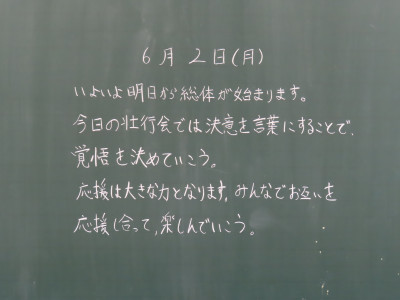 6月2日(月)
いよいよ明日から総体が始まります。
今日の壮行会では決意を言葉にすることで、
覚悟を決めていこう。
応援は大きな力となります。みんなでお互いを
応援し合って、楽しんでいこう。